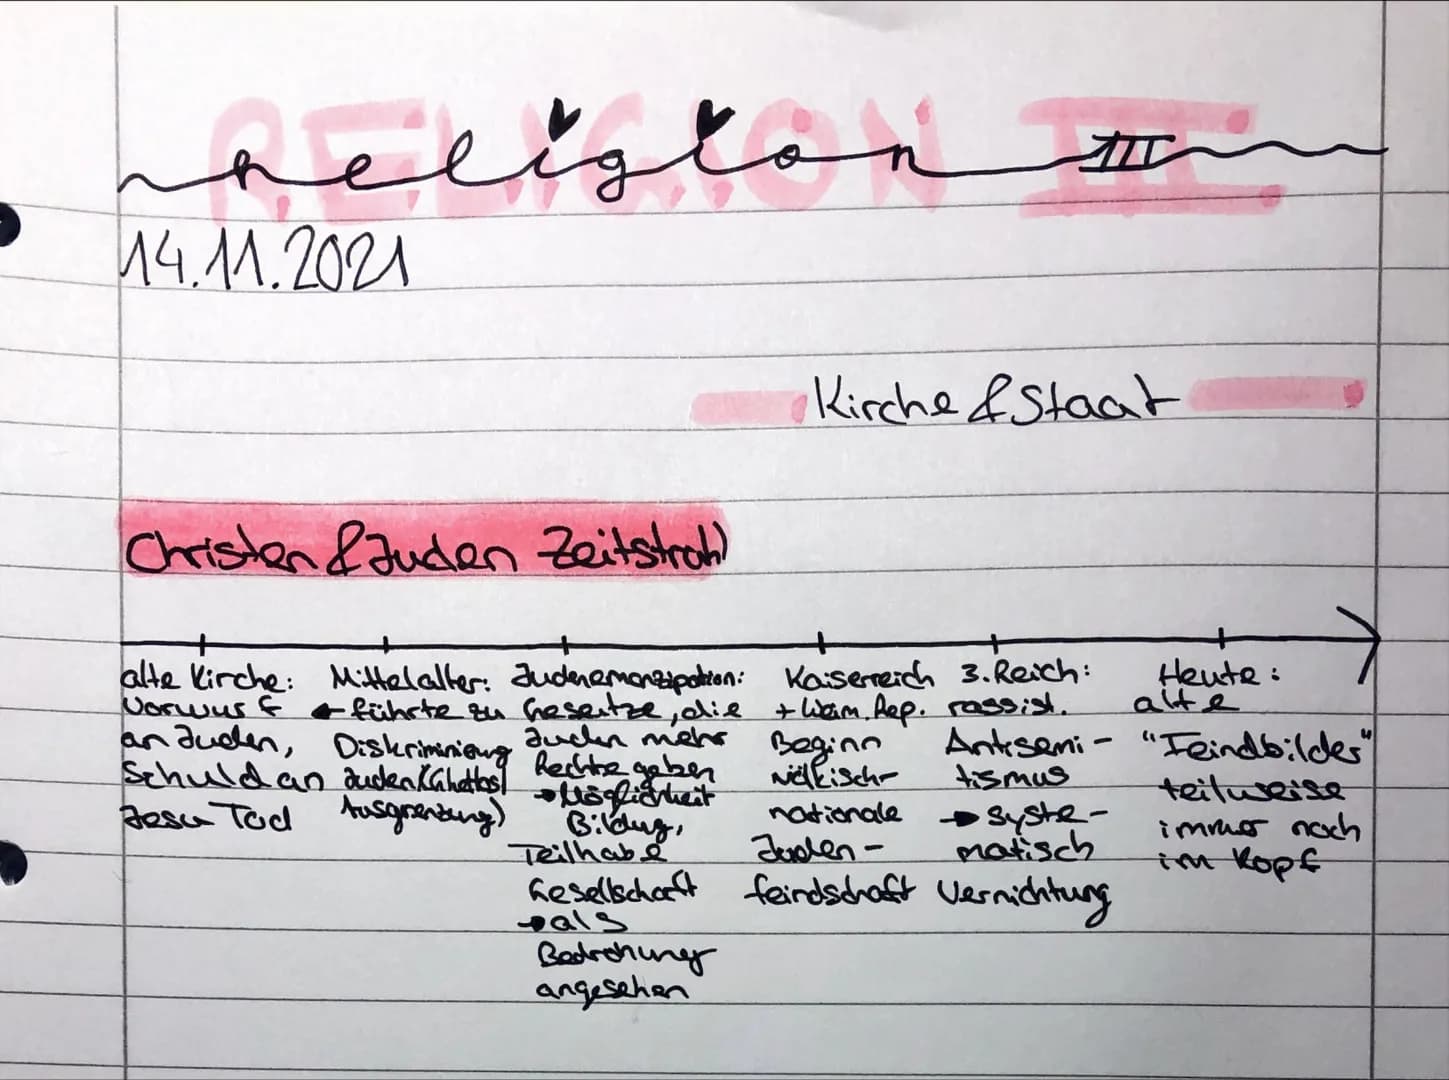 RELIGION III
religion III
14.11.2021
Kirche & Staat
Christen & Juden Zeitstrahl
alte Kirche:
Vorwurf
an Juden,
Schuld an
Jesu Tod
Mittelalter:
← führte zu
Diskriminierung
Juden (Ghettos,
Ausgrenzung)
Judenemanzipation:
Gesetze, die
Juden mehr
Rechte geben
→ Möglichkeit
Bildung,
Teilhabe
Gesellschaft
→ als
Bedrohung
angesehen
Kaiserreich
+ Weim. Rep.
Beginn
völkisch-
nationale
Juden-
feindschaft
3. Reich:
rassist.
Antisemi-
tismus
→ syste-
matisch
Vernichtung
Heute:
alte
"Feindbilder"
teilweise
immer noch
im Kopf